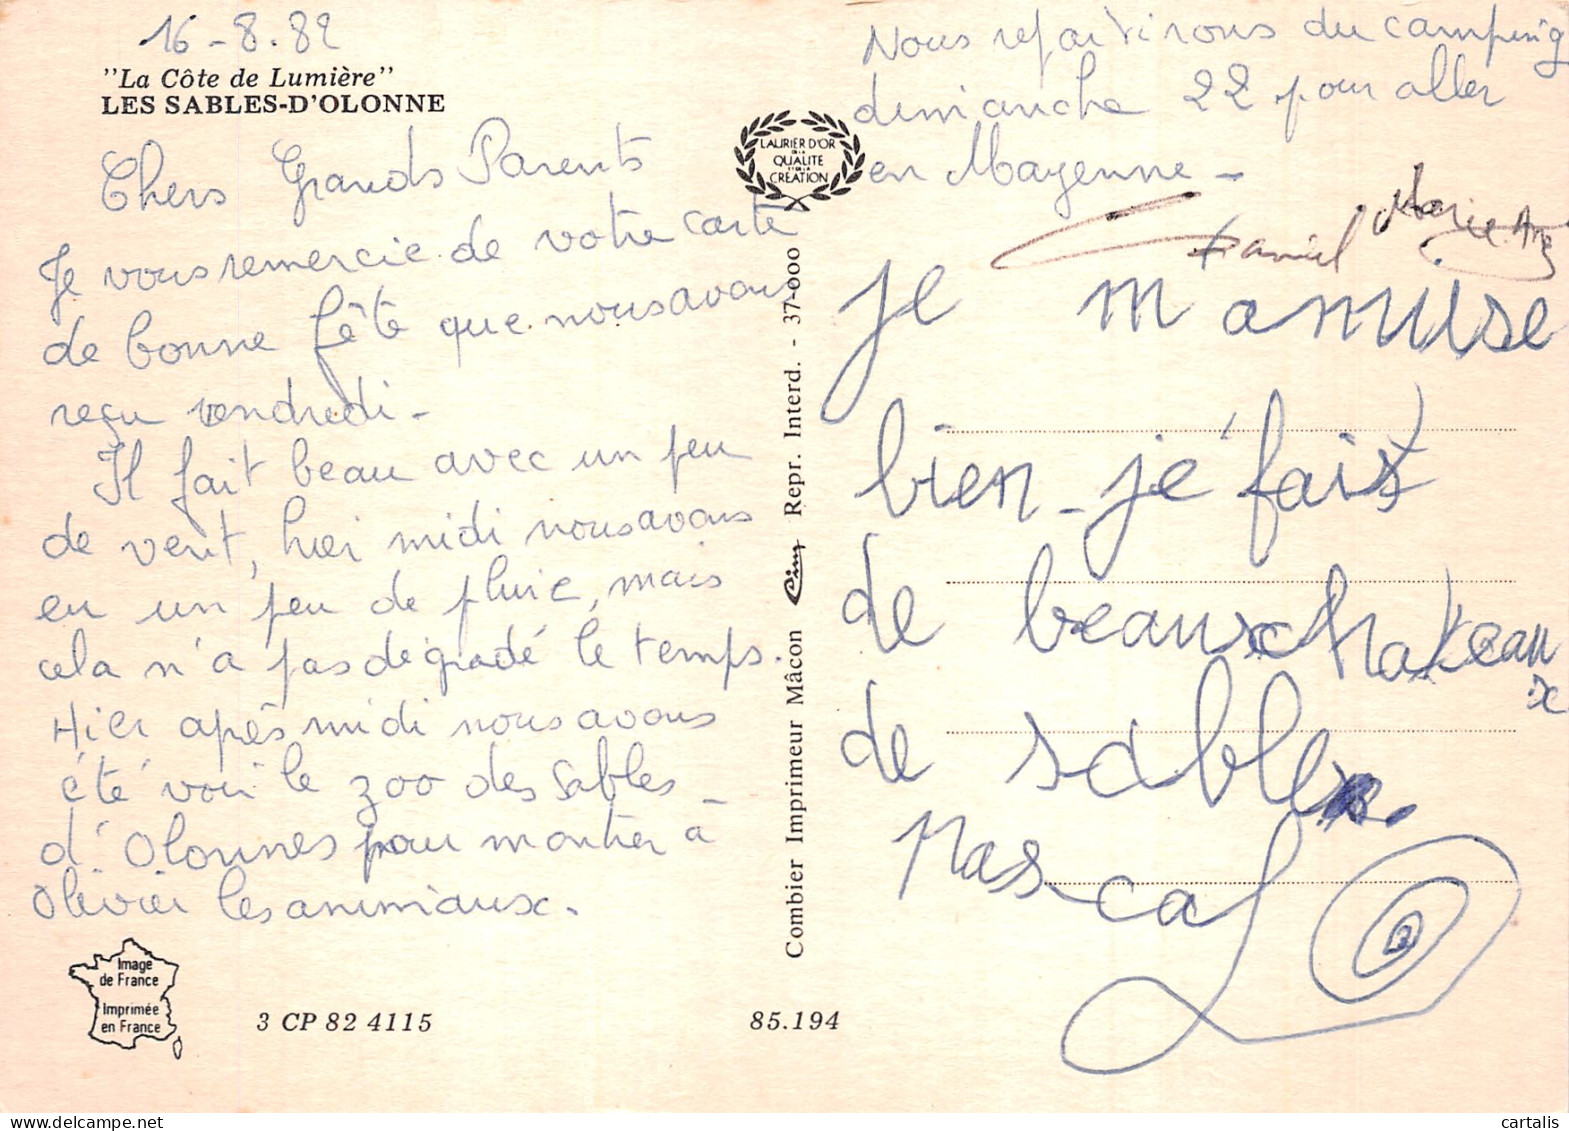 16-8.82
"La Côte de Lumière"
LES SABLES-D'OLONNE
Chers Grands Parents
Je vous remercie de votre carte
de bonne fête que nous avons
reçu vendredi-
Il fait beau avec un peu
de vent, hier midi nous avons
eu un peu de pluie, mais
cela n'a pas dégradé le temps.
Hier après midi nous avons
été voir le zoo des Sables-
d'Olonnes pour montrer à
Olivier les animaux.
Image
de France
Imprimée
en France
3 CP 82 4115
85.194
LAURIER D'OR
DE LA
QUALITE
ET DE LA
CREATION
Combier Imprimeur Mâcon Cim Repr. Interd. - 37-000
Nous repartirons du camping
dimanche 22 pour aller
en Mayenne-
Daniel Marie.Ange
je m'amuse
bien-je fais
de beaux chateau
x
de sable.
Pas-cal
cartalis.com